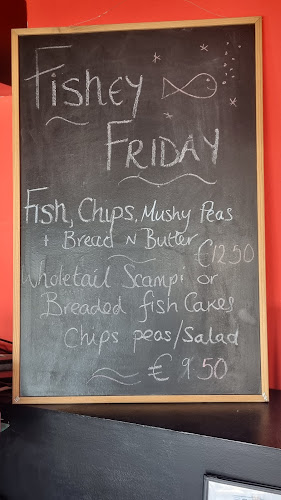 Fishey
Friday
Fish, Chips, Mushy Peas
+ Bread N Butter
€12.50
Wholetail Scampi or
Breaded fish Cakes
Chips peas/Salad
€ 9.50